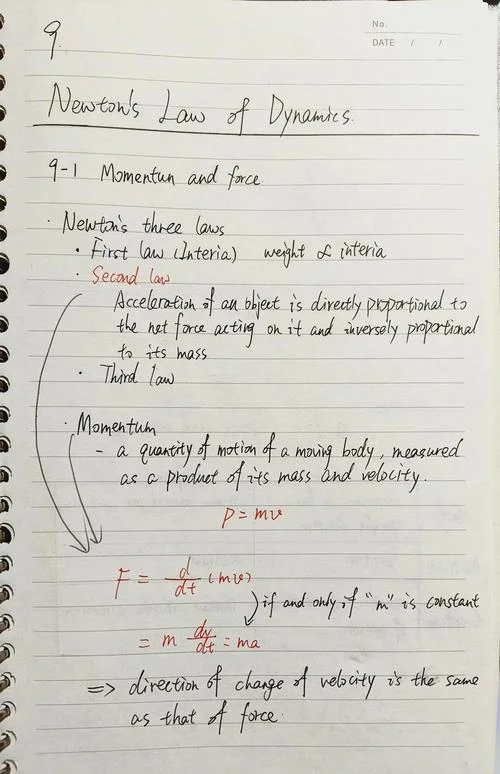 9.
No.
DATE / /
Newton's Law of Dynamics.
9-1 Momentun and force.
· Newton's three laws
· First law (Interia) weight ∝ interia
· Second law
Acceleration of an object is directly proportional to
the net force acting on it and inversely proportional
to its mass
· Third law
· Momentum
- a quantity of motion of a moving body, measured
as a product of its mass and velocity.
P = mv
F = d/dt (mv)
) if and only if "m" is constant
= m dv/dt = ma
=> direction of change of velocity is the same
as that of force.